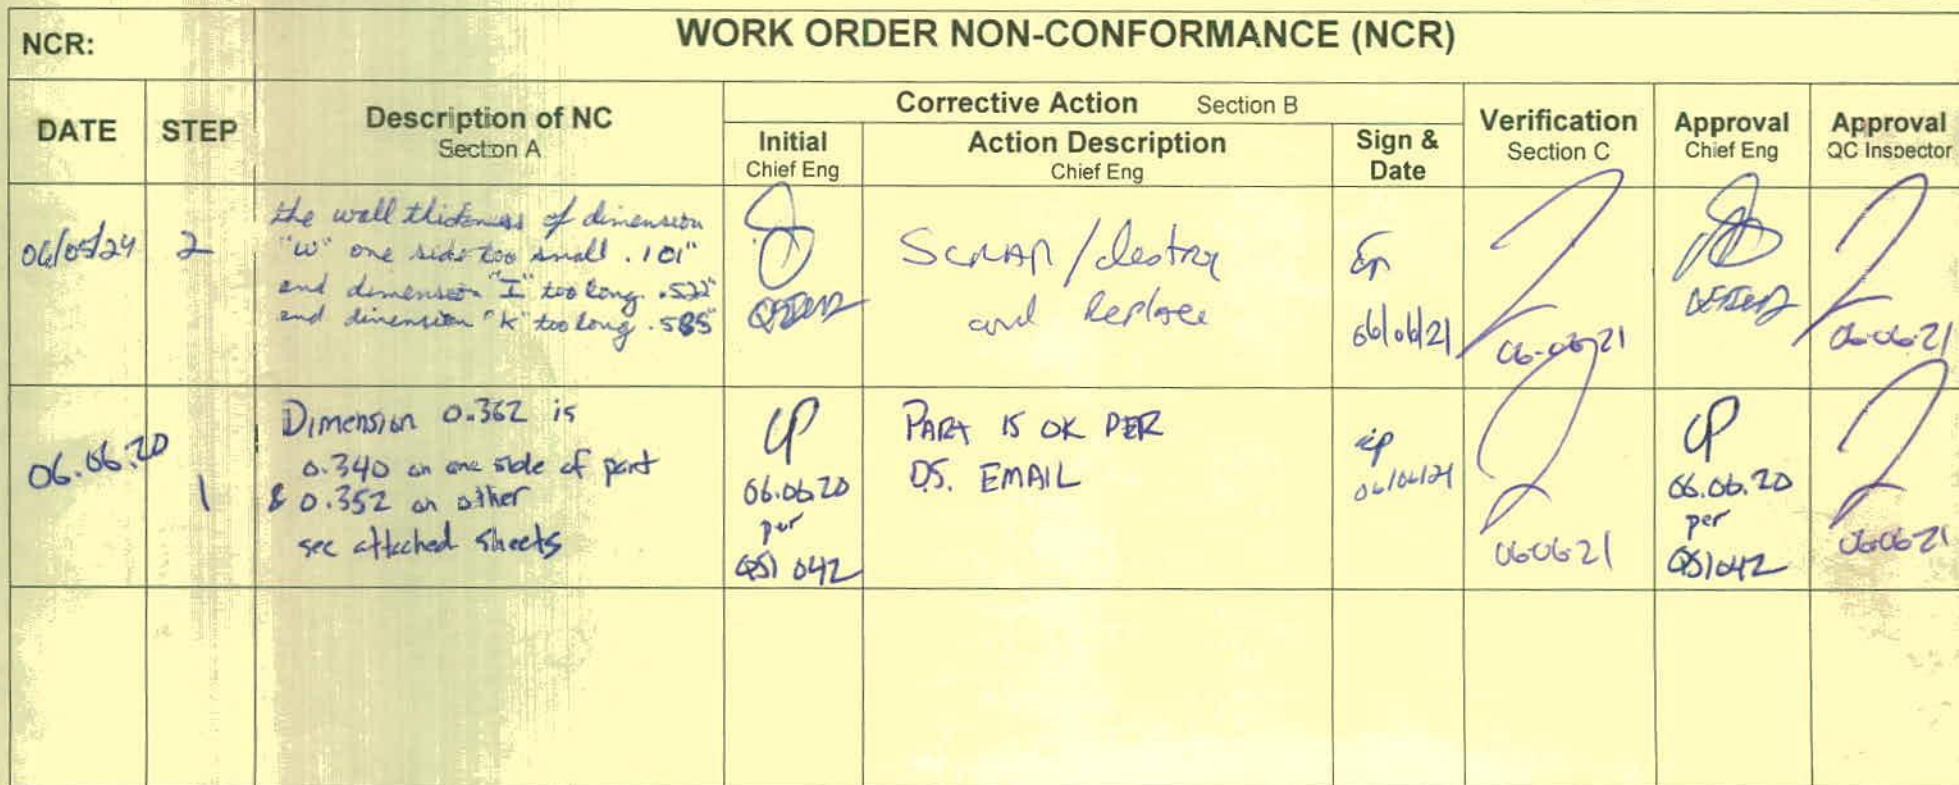 NCR:
WORK ORDER NON-CONFORMANCE (NCR)
DATE
STEP
Description of NC
Section A
Corrective Action Section B
Initial
Chief Eng
Action Description
Chief Eng
Sign &
Date
Verification
Section C
Approval
Chief Eng
Approval
QC Inspector
06/05/24
2
the wall thickness of dimension
"W" one side too small .101"
and dimension "I" too long .522"
and dimension "K" too long .585"
Scrap/destroy
and Replace
06/06/21
06-06-21
06-06-21
06.06.20
1
Dimension 0.362 is
0.340 on one side of part
& 0.352 on other
see attached sheets
CP
06.06.20
per
QSI 042
PART IS OK PER
D.S. EMAIL
CP
06/06/21
06-06-21
CP
06.06.20
per
QSI 042
06-06-21